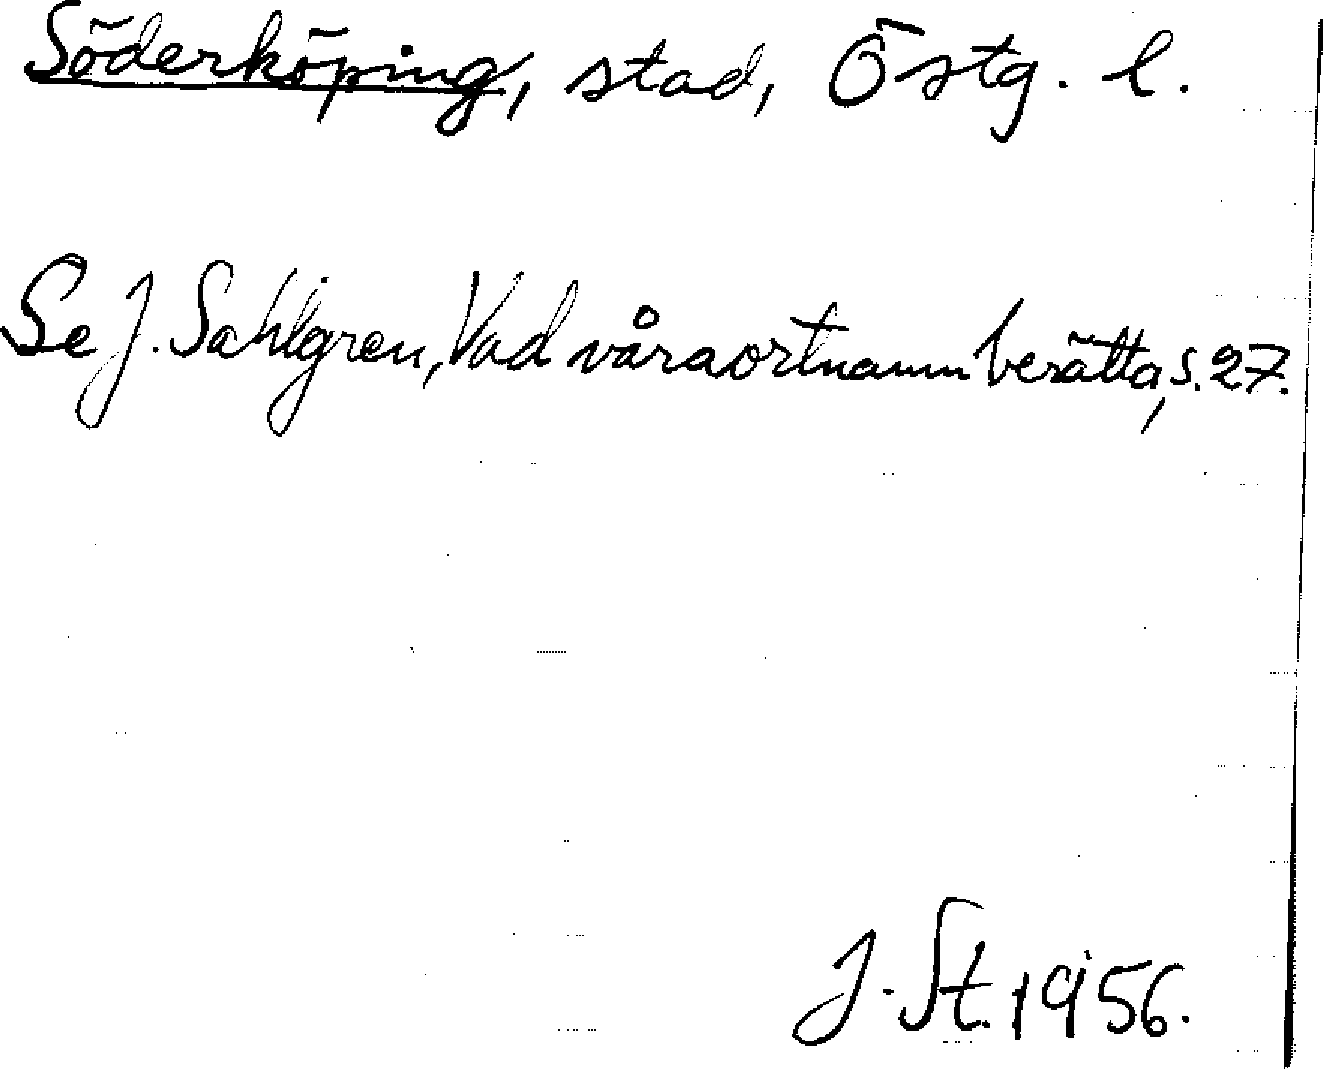 Söderköping, stad, Östg. l.
Se J. Sahlgren, Vad våra ortnamn berätta, s. 27.
J. St. 1956.